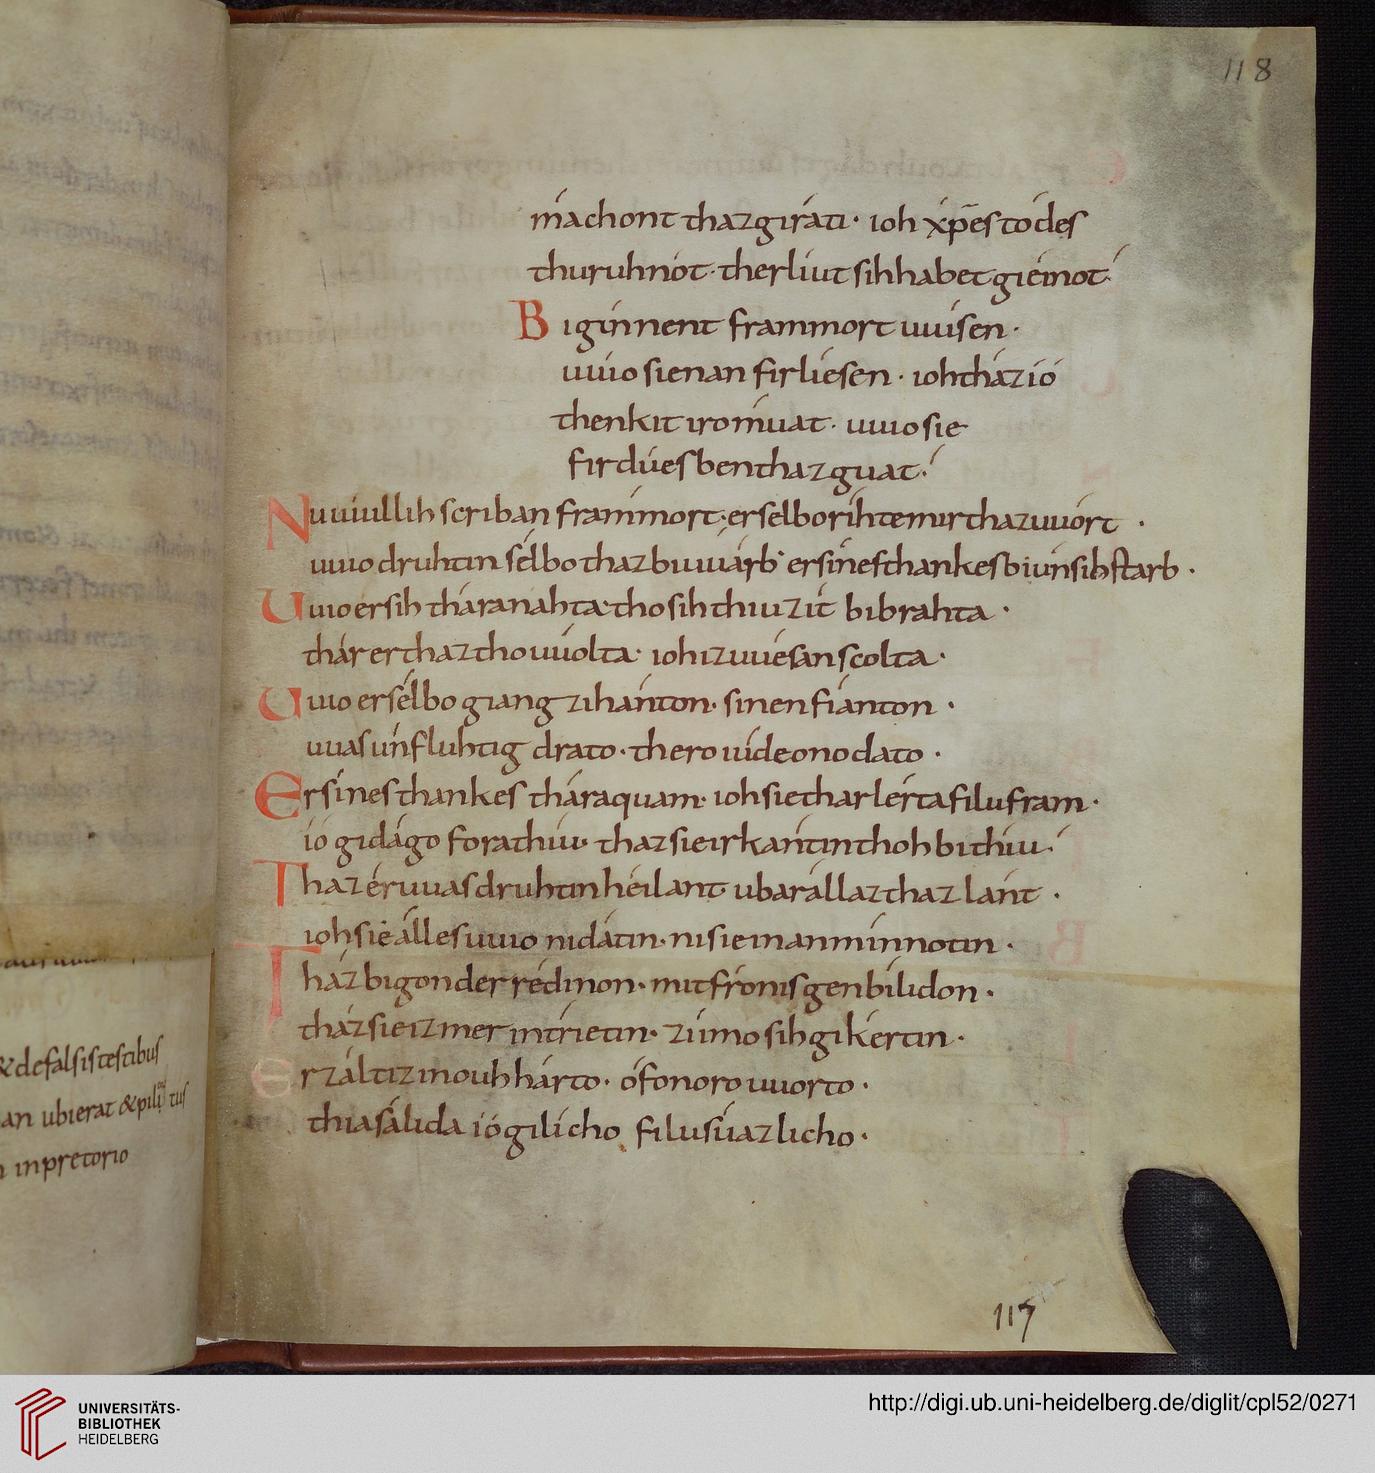 118
máchont thaz giráti · ioh xp̄es tódes
thuruh nót · ther liut sih habet gieinot ·
Bigínnent frammort uuísen ·
uuio sie nan firlíesen · ioh tház ió
thenkit iro múat · uuio sie
firdúesben thaz guat ·
Nu uuill ih scriban frammort · er selbo ríhte mir thaz uuórt ·
uuio druhtin sélbo thaz biuuárb · er sínes thankes bi unsih starb ·
Uuio er sih thára nahta · tho sih thiu zít bibrahta ·
thár er thaz tho uuólta · ioh iz uuésan scolta ·
Uuio er sélbo giang zi hánton · sinen fíanton ·
uuas únfluhtig drato · thero uídeono dato ·
Er sínes thankes thára quam · ioh sie thar lérta filu fram ·
ió gidágo fora thiu · thaz sie irkántin thoh bi thiu ·
Thaz ér uuas druhtin héilant · ubar állaz thaz lánt ·
ioh sie álles uuio ni dátin · ni sie inan mínnotin ·
Tház bigonder rédinon · mit frónisgen bílidon ·
tház sie iz mer intríetin · zi ímo sih gikértin ·
Er zált iz in ouh hárto · ófonoro uuorto ·
thia sálida ió gilícho filu súazlicho ·
& de falsis testibus
an ubi erat & pili tus
in pretorio
117
UNIVERSITÄTS-
BIBLIOTHEK
HEIDELBERG
http://digi.ub.uni-heidelberg.de/diglit/cpl52/0271